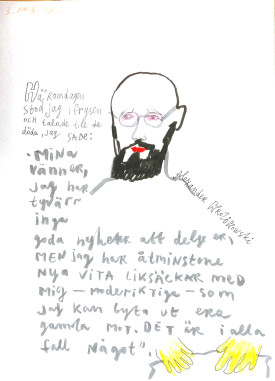 Häromdagen
stod jag i frysen
och talade till de
döda, jag
SADE:
"MINA
vänner,
jag har
tyvärr
inga
goda nyheter att delge er,
MEN jag har åtminstone
NYA VITA LIKSÄCKAR MED
Mig – moderiktiga – som
jag kan byta ut era
gamla MOT. DET ÄR i alla
fall Något".
Alexander